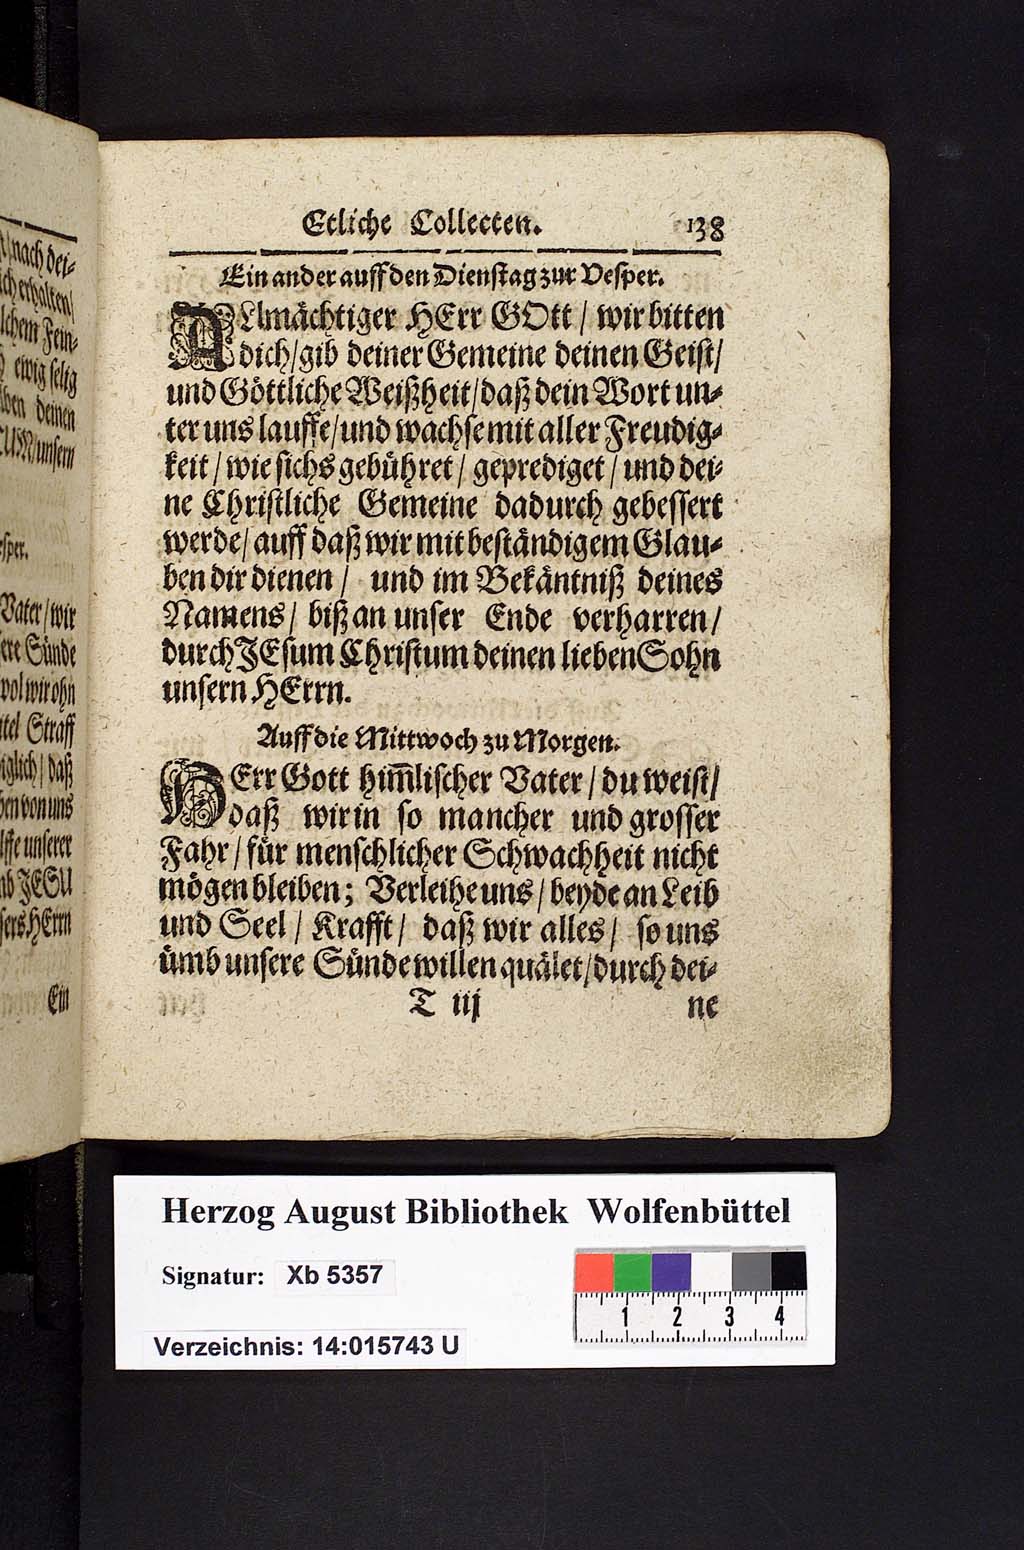 nach dei-
ich erhalten/
lchem Fein-
ewig selig
ben deinen
unsern
esper.
Vater/ wir
ere Sünde
wol wir ohn
itel Straff
iglich/ daß
ben von uns
lffe unserer
nb JESU
sers HErrn
Ein
Etliche Collecten. 138
Ein ander auff den Dienstag zur Vesper.
ALlmächtiger HErr GOtt / wir bitten
dich/ gib deiner Gemeine deinen Geist/
und Göttliche Weißheit/ daß dein Wort un-
ter uns lauffe/ und wachse mit aller Freudig-
keit / wie sichs gebühret / geprediget / und dei-
ne Christliche Gemeine dadurch gebessert
werde/ auff daß wir mit beständigem Glau-
ben dir dienen / und im Bekäntniß deines
Namens / biß an unser Ende verharren /
durch JEsum Christum deinen lieben Sohn
unsern HErrn.
Auff die Mittwoch zu Morgen.
HErr Gott him̅lischer Vater / du weist/
daß wir in so mancher und grosser
Fahr / für menschlicher Schwachheit nicht
mögen bleiben; Verleihe uns / beyde an Leib
und Seel / Krafft / daß wir alles / so uns
ümb unsere Sünde willen quälet/ durch dei-
T iij ne
Herzog August Bibliothek Wolfenbüttel
Signatur: Xb 5357
1 2 3 4
Verzeichnis: 14:015743 U